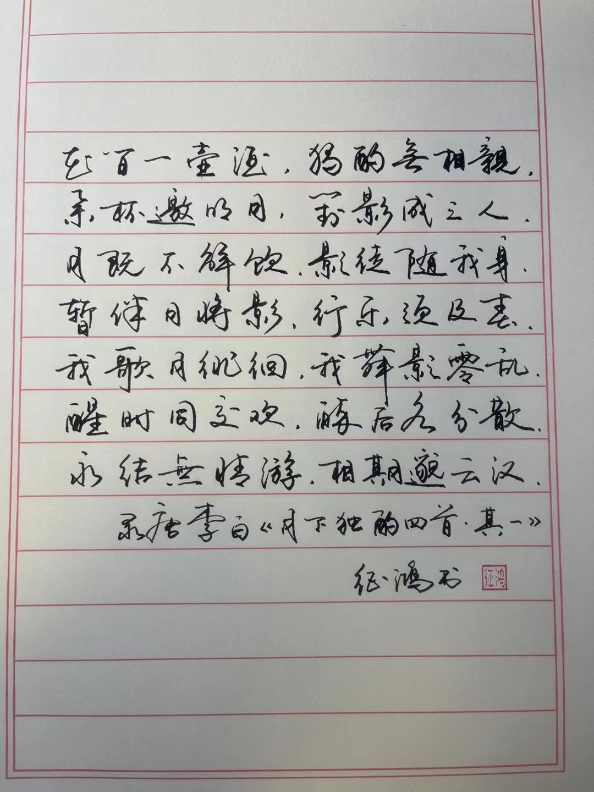 花间一壶酒，獨酌無相親．
举杯邀明月，對影成三人．
月既不解饮．影徒随我身．
暂伴月将影．行乐须及春．
我歌月徘徊．我舞影零乱．
醒时同交欢．醉后各分散．
永结無情游．相期邈云汉．
录唐李白《月下独酌四首·其一》
征鸿书
征鸿